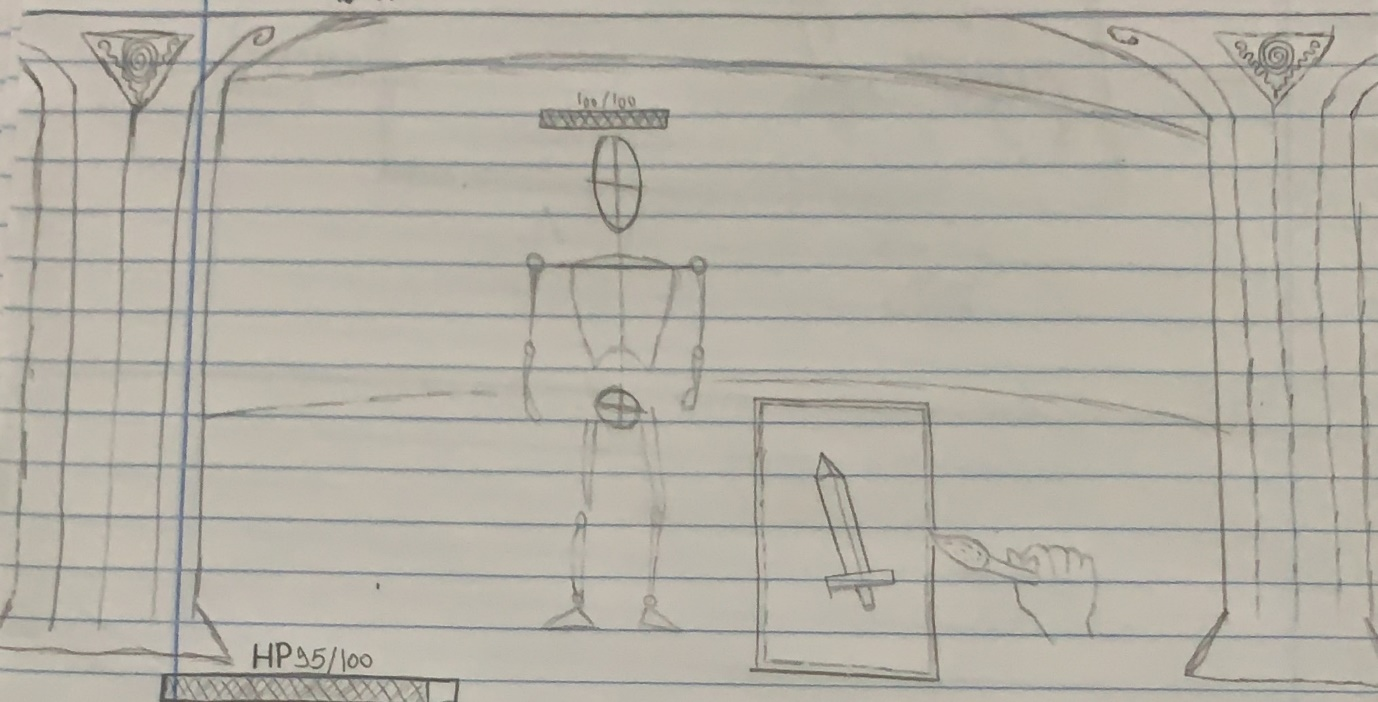 100/100
HP 95/100